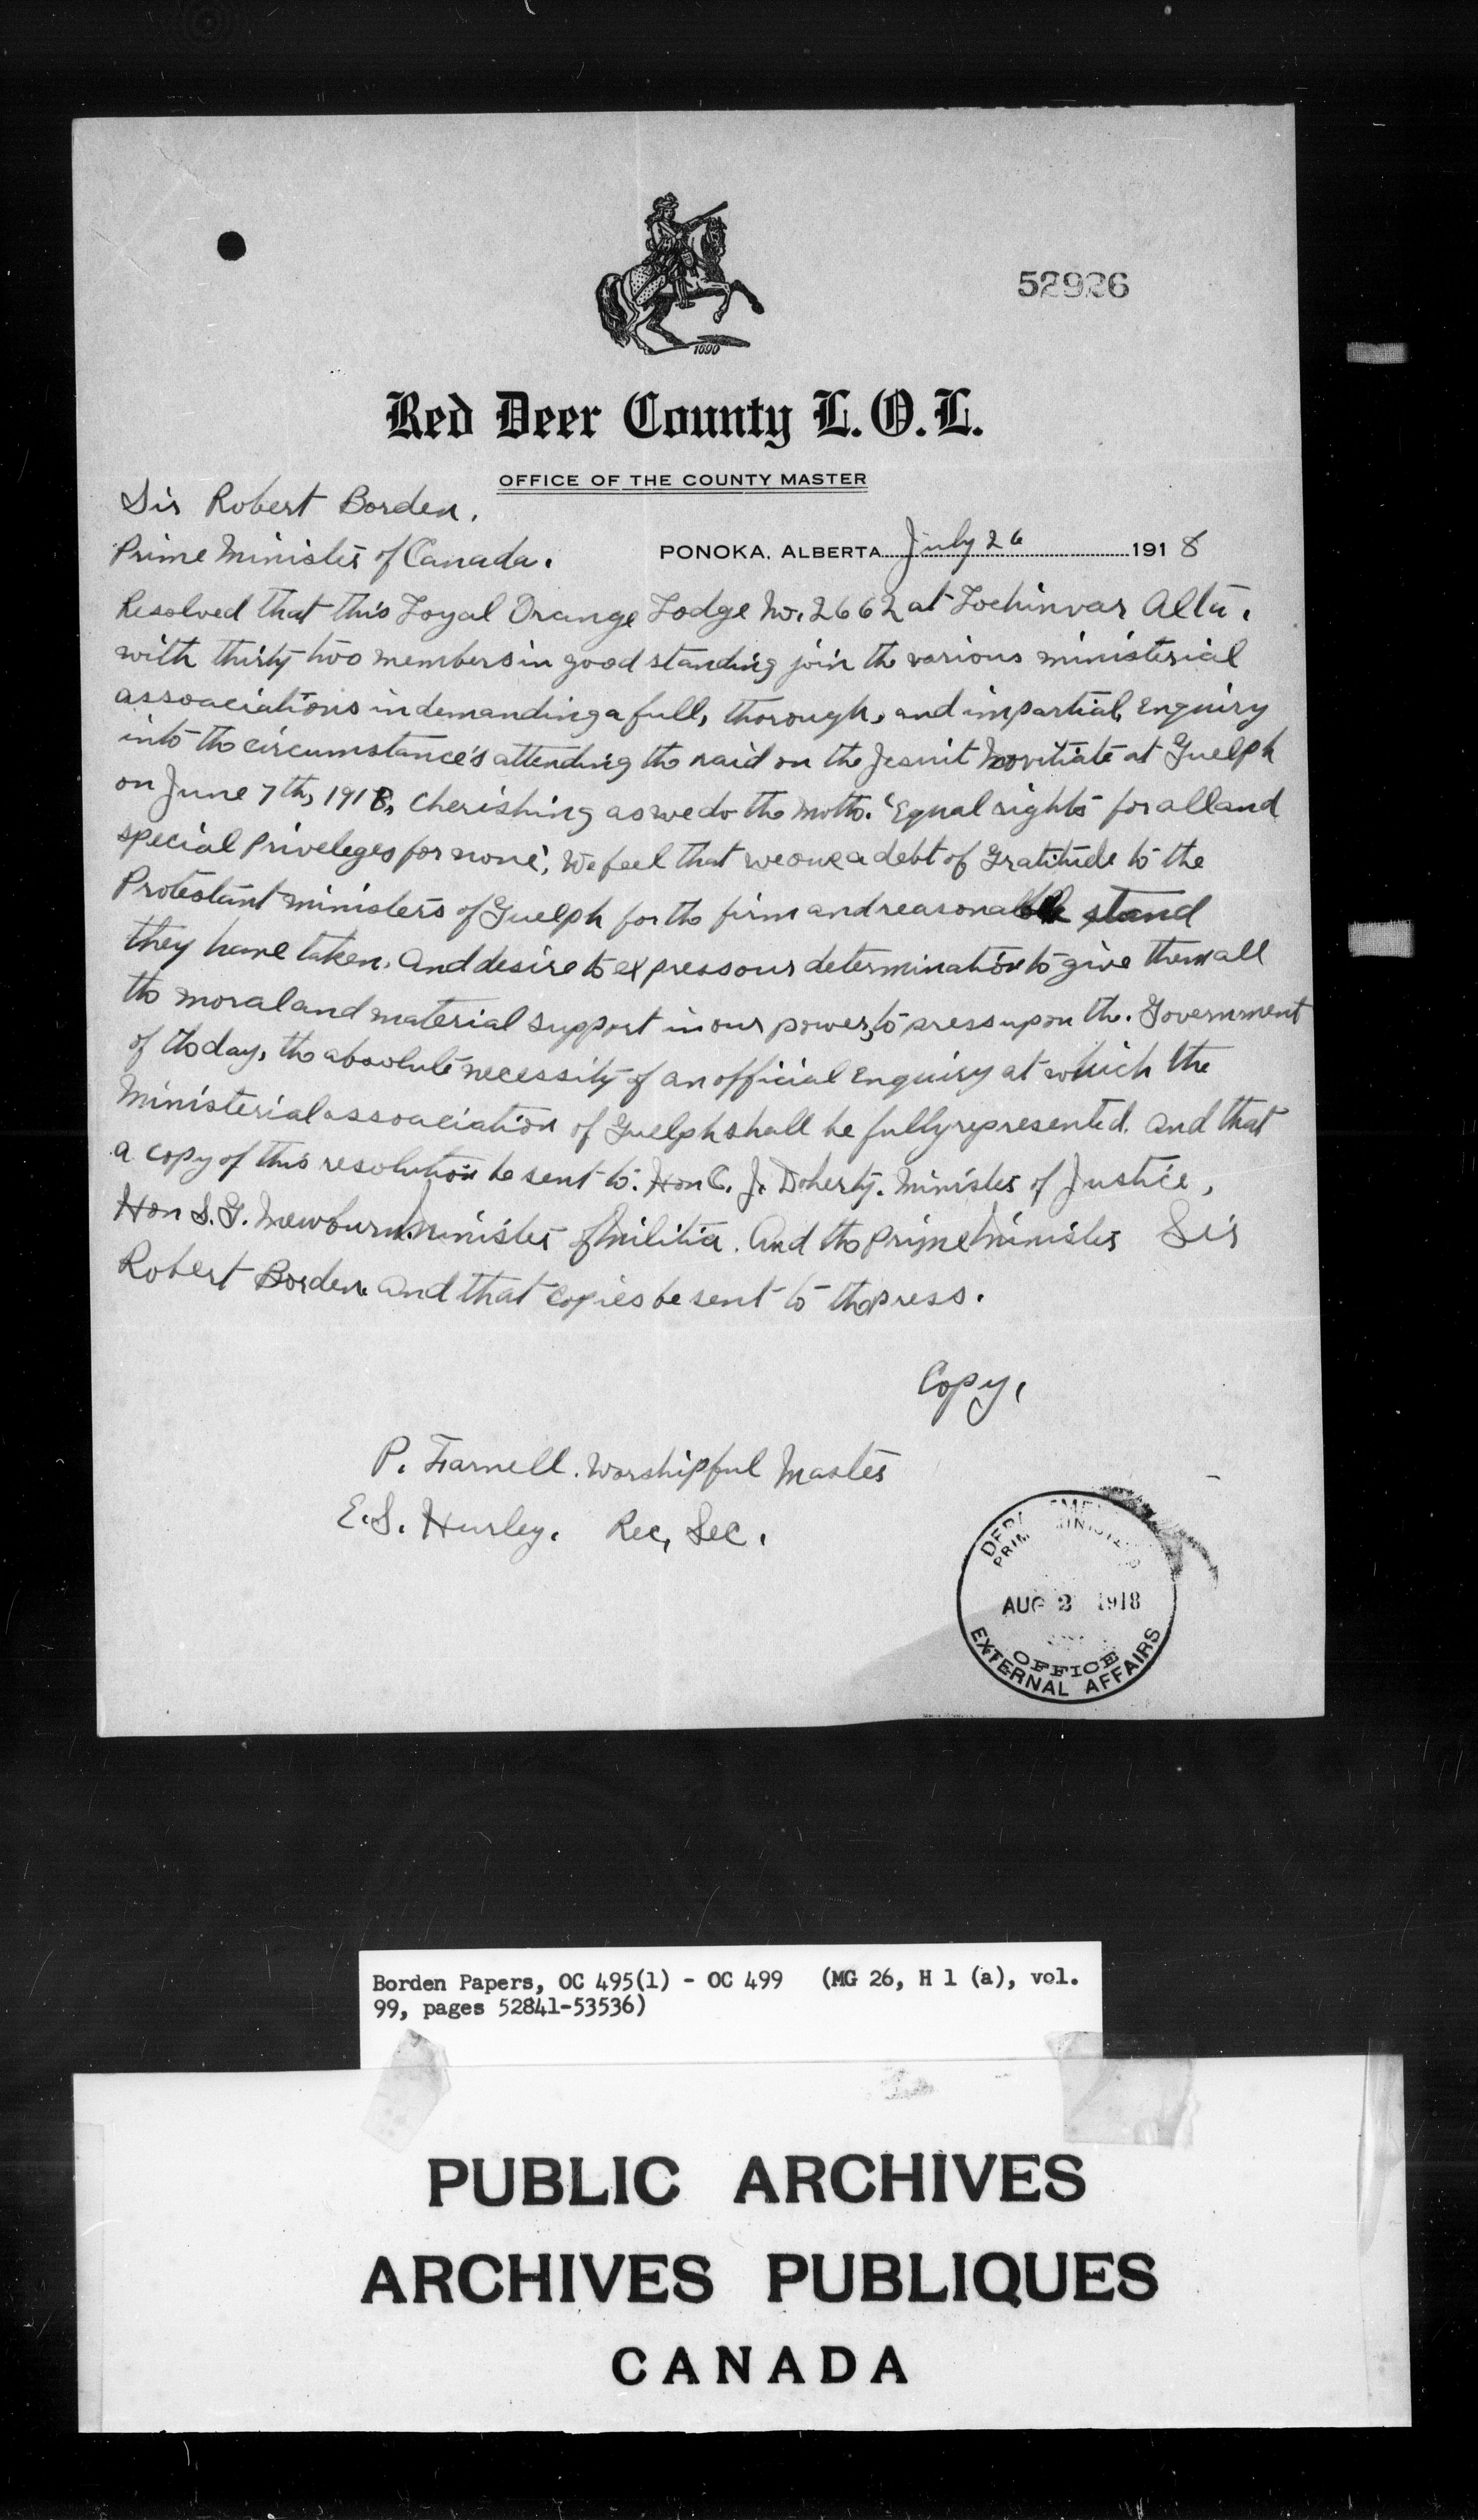 1690
52926
Red Deer County L.O.L.
OFFICE OF THE COUNTY MASTER
Sir Robert Borden.
Prime Minister of Canada.
PONOKA, ALBERTA July 26 1918
Resolved that this Loyal Orange Lodge No. 2662 at Lochinvar Alta.
with thirty two members in good standing join the various ministerial
assoaciations in demanding a full, thorough, and impartial, Enquiry
into the circumstance's attending the raid on the Jesuit Novitiate at Guelph
on June 7th, 1918, Cherishing as we do the motto. 'Equal rights for all and
special Priveleges for none', We feel that we owe a debt of Gratitude to the
Protestant ministers of Guelph for the firm and reasonable stand
they have taken. And desire to express our determination to give them all
the moral and material support in our power, to press upon the. Government
of the day, the absolute necessity of an official Enquiry at which the
Ministerial assoaciation of Guelph shall be fully represented. And that
a copy of this resolution be sent to. Hon C. J. Doherty. Minister of Justice,
Hon S. G. Mewburn. Minister of Militia. And the Prime Minister Sir
Robert Borden. And that copies be sent to the press.
Copy.
P. Farnell. Worshipful Master
E. S. Hurley. Rec, Sec.
AUG 2 1918
OFFICE
EXTERNAL AFFAIRS
Borden Papers, OC 495(1) - OC 499 (MG 26, H 1 (a), vol.
99, pages 52841-53536)
PUBLIC ARCHIVES
ARCHIVES PUBLIQUES
CANADA